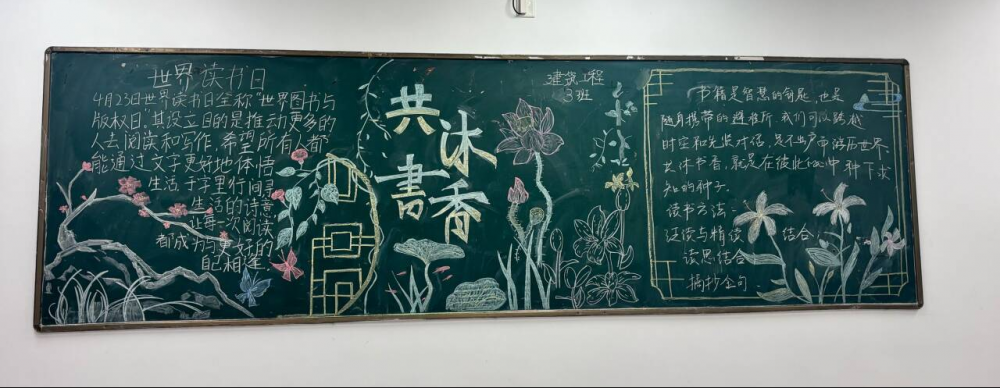 世界读书日
4月23日世界读书日全称"世界图书与
版权日,其设立目的是推动更多的
人去阅读和写作,希望所有人都
能通过文字更好地体悟
生活,于字里行间寻
生活的诗意
让每一次阅读
都成为与更好的
自己相逢.
共沐
書香
建筑工程
3班
书籍是智慧的钥匙,也是
随身携带的避难所,我们可以跨越
时空和先贤对话,足不出户中游历世界
共沐书香,就是在彼此心中种下求
知的种子.
读书方法:
泛读与精读 结合
读思结合
摘抄金句